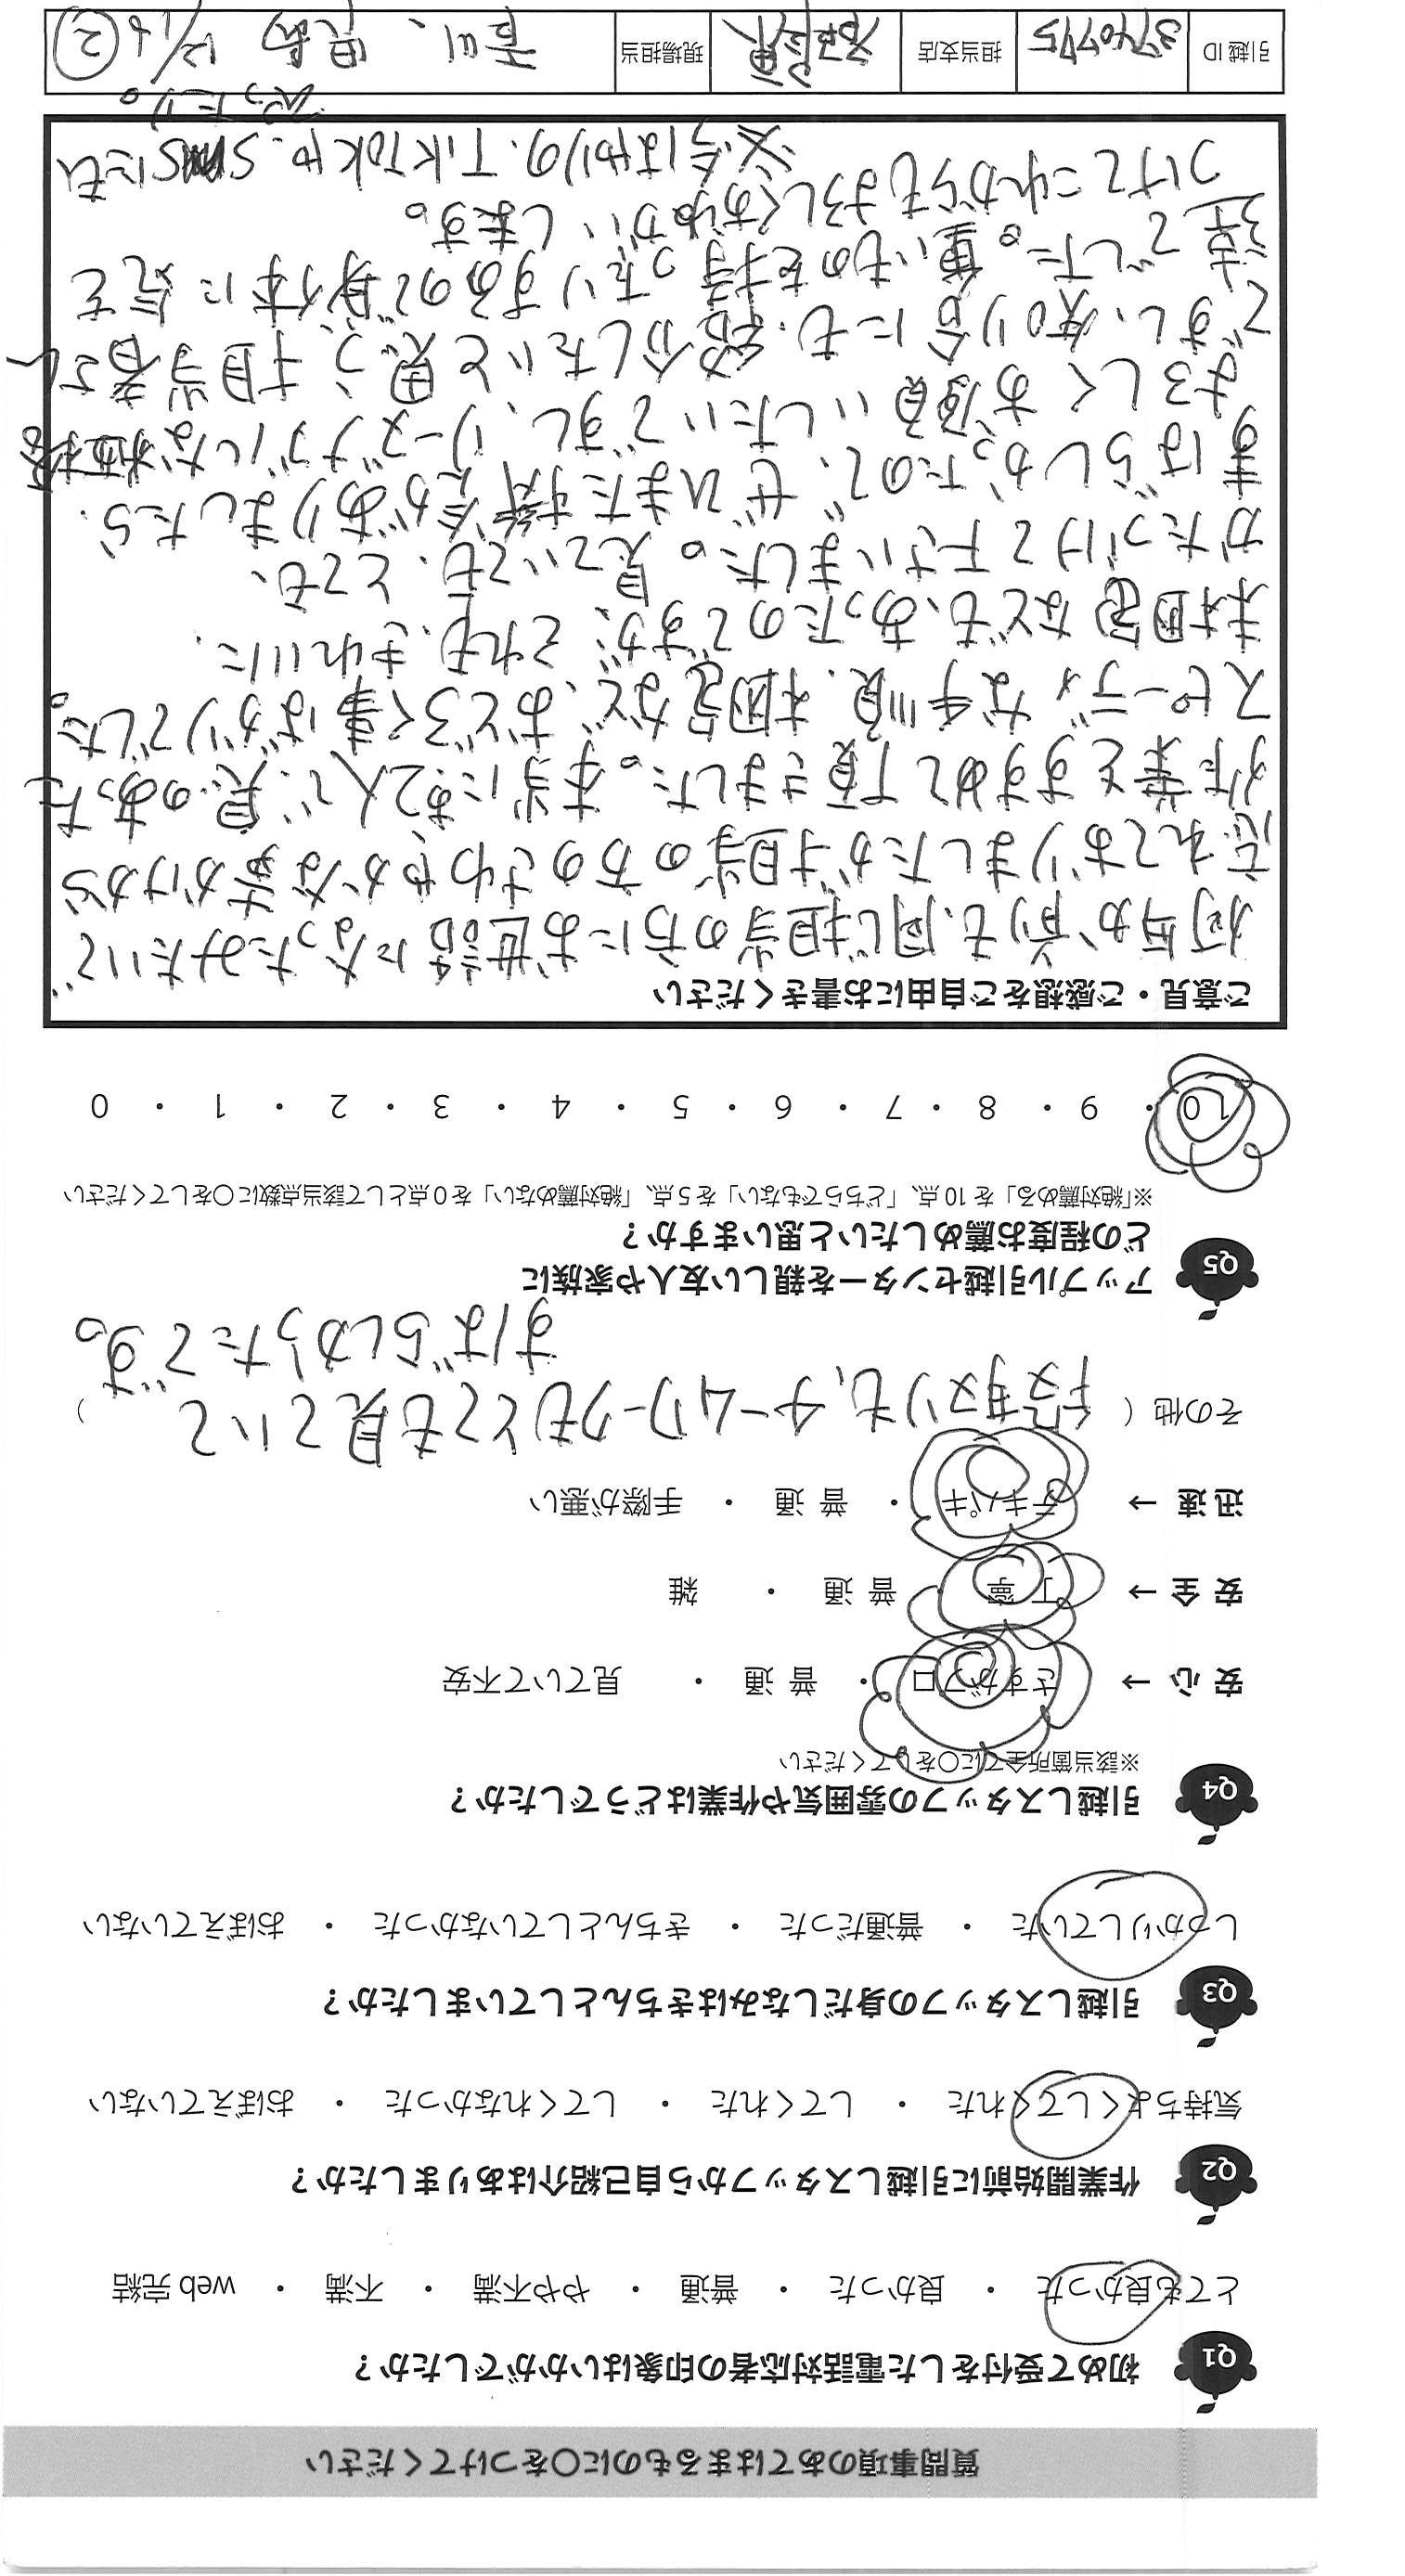 質問事項のあてはまるものに〇をつけてください
Q1 初めて受付をした電話対応者の印象はいかがでしたか？
とても良かった ・ 良かった ・ 普通 ・ やや不満 ・ 不満 ・ web 完結
Q2 作業開始前に引越しスタッフから自己紹介はありましたか？
気持ちよくしてくれた ・ してくれた ・ してくれなかった ・ おぼえていない
Q3 引越しスタッフの身だしなみはきちんとしていましたか？
しっかりしていた ・ 普通だった ・ きちんとしていなかった ・ おぼえていない
Q4 引越しスタッフの雰囲気や作業はどうでしたか？
※該当箇所全てに〇をしてください
安心 → さすがプロ ・ 普通 ・ 見ていて不安
安全 → 丁寧 ・ 普通 ・ 雑
迅速 → テキパキ ・ 普通 ・ 手際が悪い
その他（ チームワークもとても見ていて ）
すばらしかったです。
Q5 アップル引越センターを親しい友人や家族に
どの程度お薦めしたいと思いますか？
※「絶対薦める」を 10 点、「どちらでもない」を 5 点、「絶対薦めない」を 0 点として該当点数に〇をしてください
10 ・ 9 ・ 8 ・ 7 ・ 6 ・ 5 ・ 4 ・ 3 ・ 2 ・ 1 ・ 0
ご意見・ご感想をご自由にお書きください
何年か前も、同じ担当の方にお世話になったみたいで
忘れておりましたが担当の方のさわやかな声かけから
作業をすすめて頂きました。本当にお2人で、息のあった
スピーディな手順.梱包など、おどろく事ばかりでした。
未梱包なども、あったのですが、それも、きれいに.
かたづけて下さいました。見ていても、とても、
すばらしかったので、ぜひまた機会がありましたら.
よろしくお願いしたいですし、リーズナブルな価格
ですし、知り合にも.紹介したいと思う、担当者さん
達でした。重いものを持ったりするので身体に気を
つけてこれからもよろしくおねがいします。
※今はやりの.TikTokや.SNSにも
ぴったり。
引越 ID 3740775 担当支店 現場担当 吉川、児島 12/16 ②